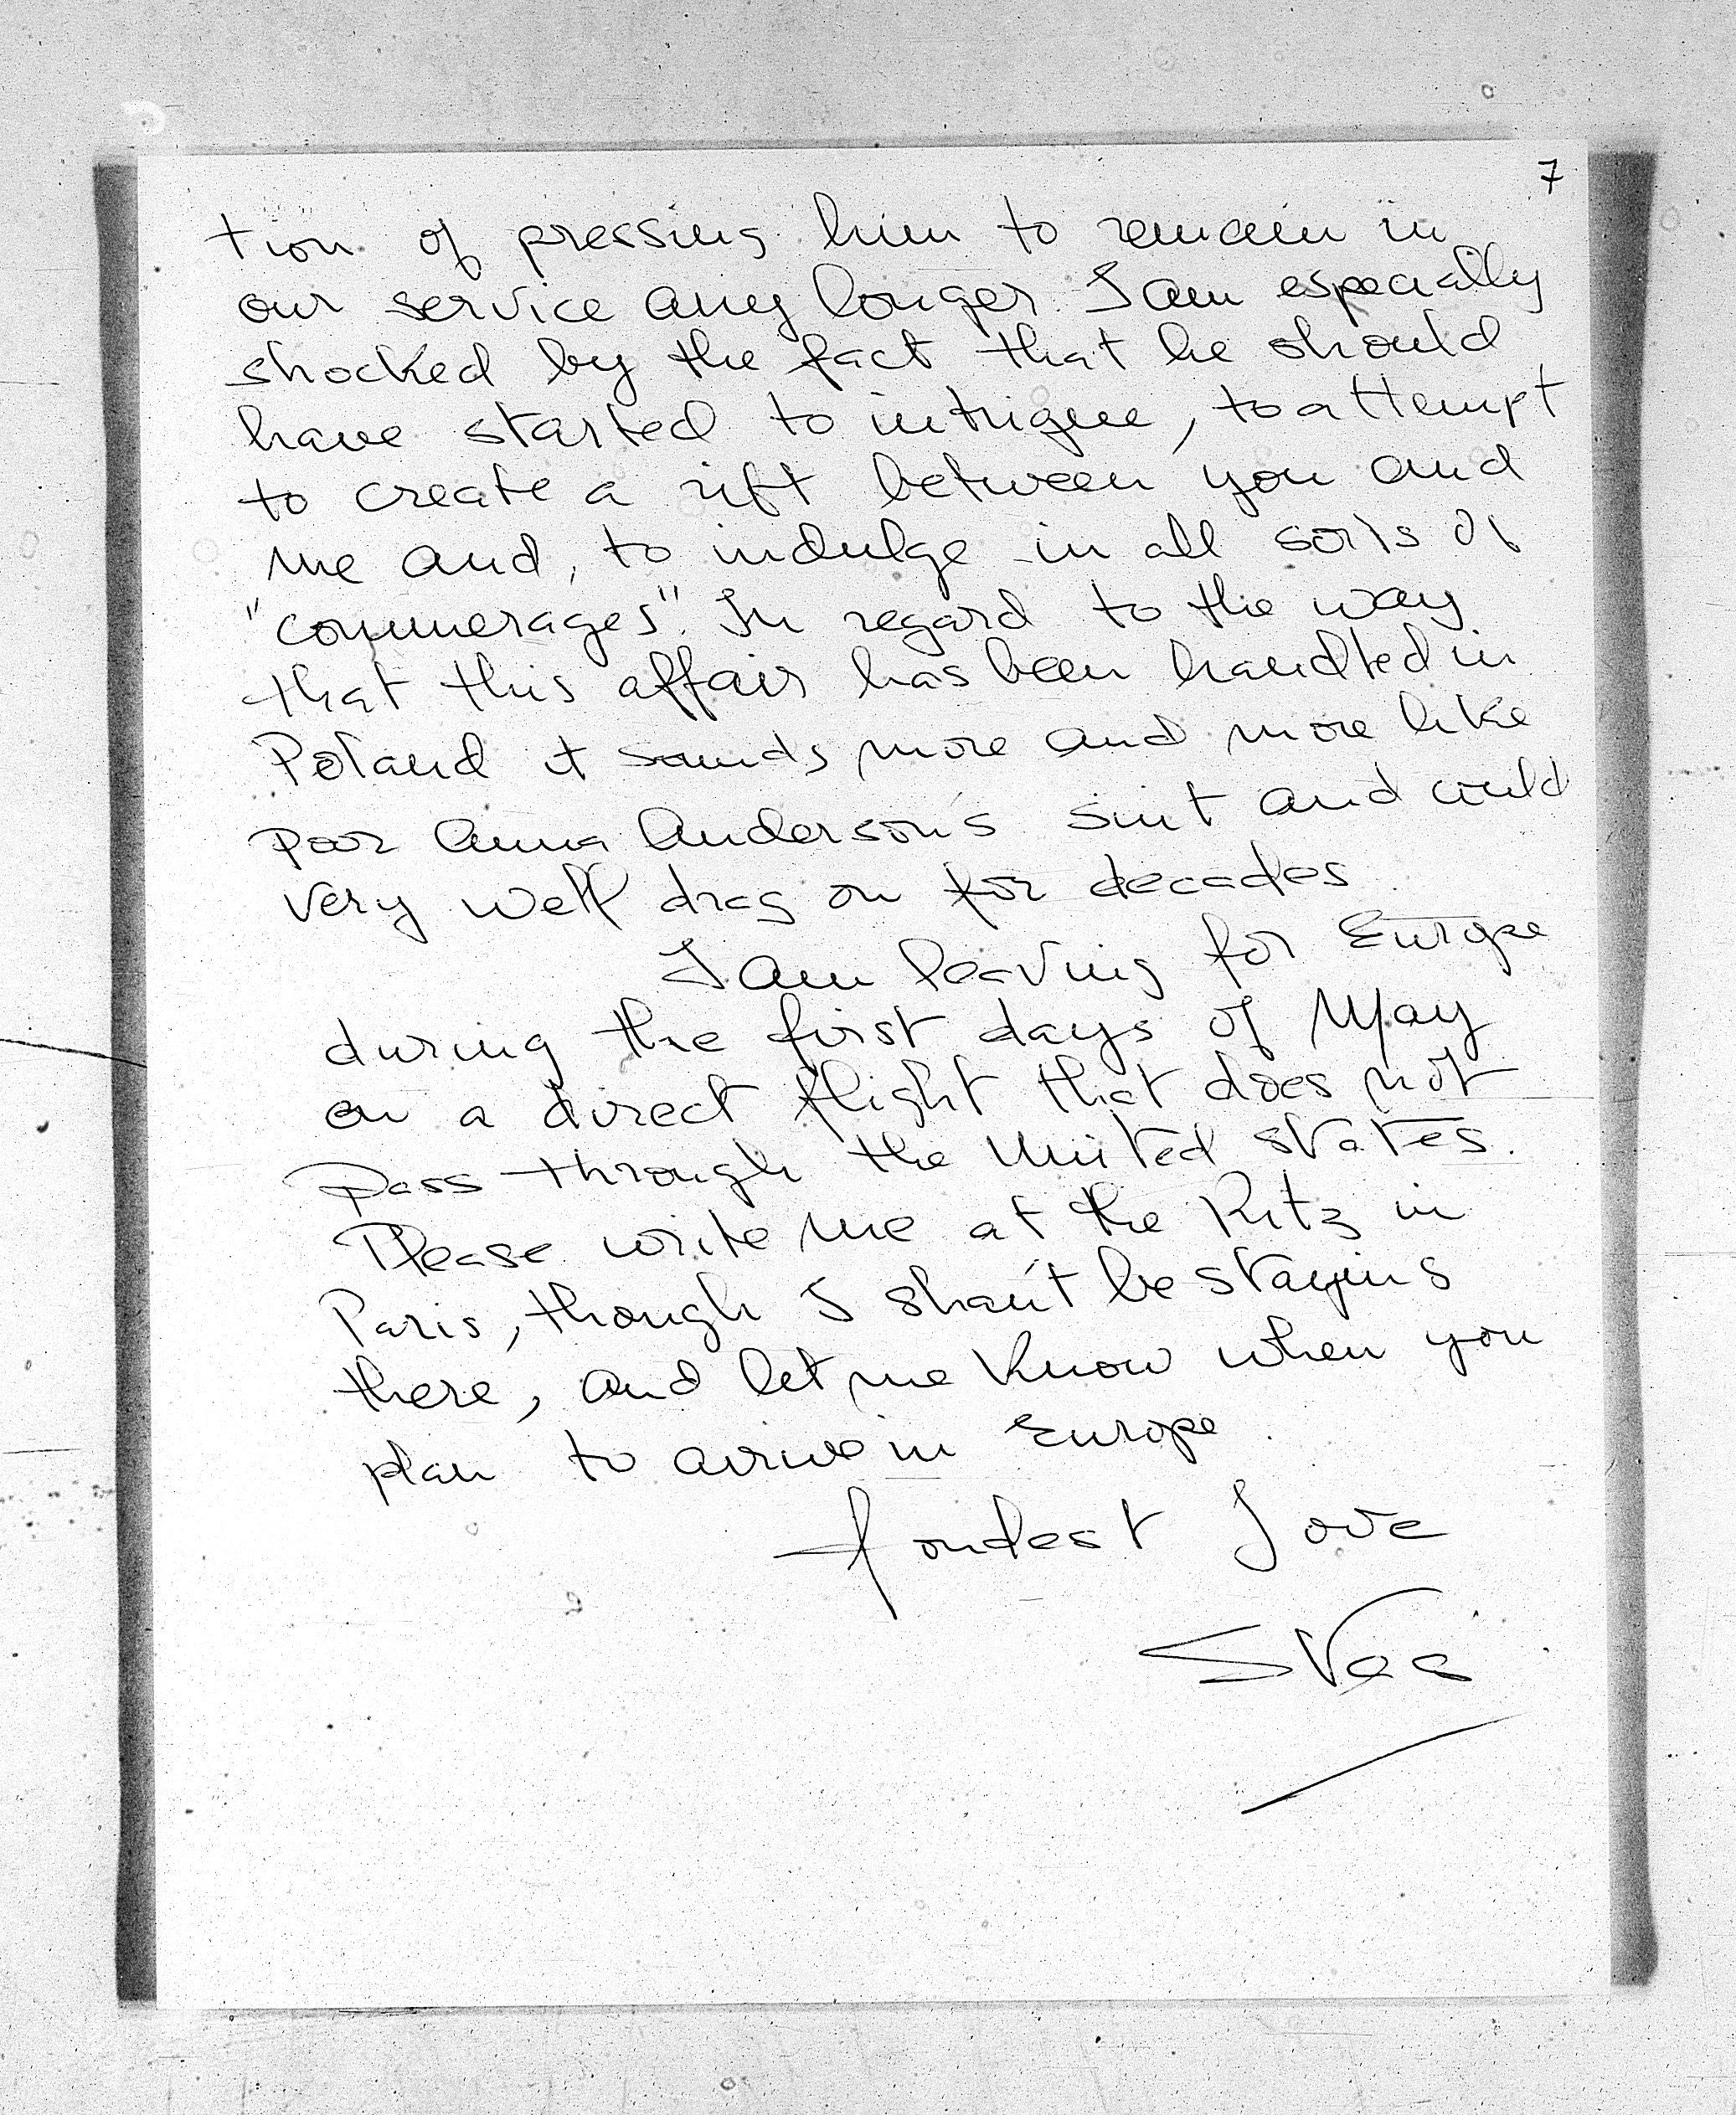 7
tion of pressing him to remain in
our service any longer. I am especially
shocked by the fact that he should
have started to intrigue, to attempt
to create a rift between you and
me and, to indulge in all sorts of
"commerages". In regard to the way
that this affair has been handled in
Poland it sounds more and more like
poor Anna Anderson's suit and could
very well drag on for decades.
I am leaving for Europe
during the first days of May
on a direct flight that does not
pass through the United States.
Please write me at the Ritz in
Paris, though I shan't be staying
there, and let me know when you
plan to arrive in Europe.
fondest love
Stas